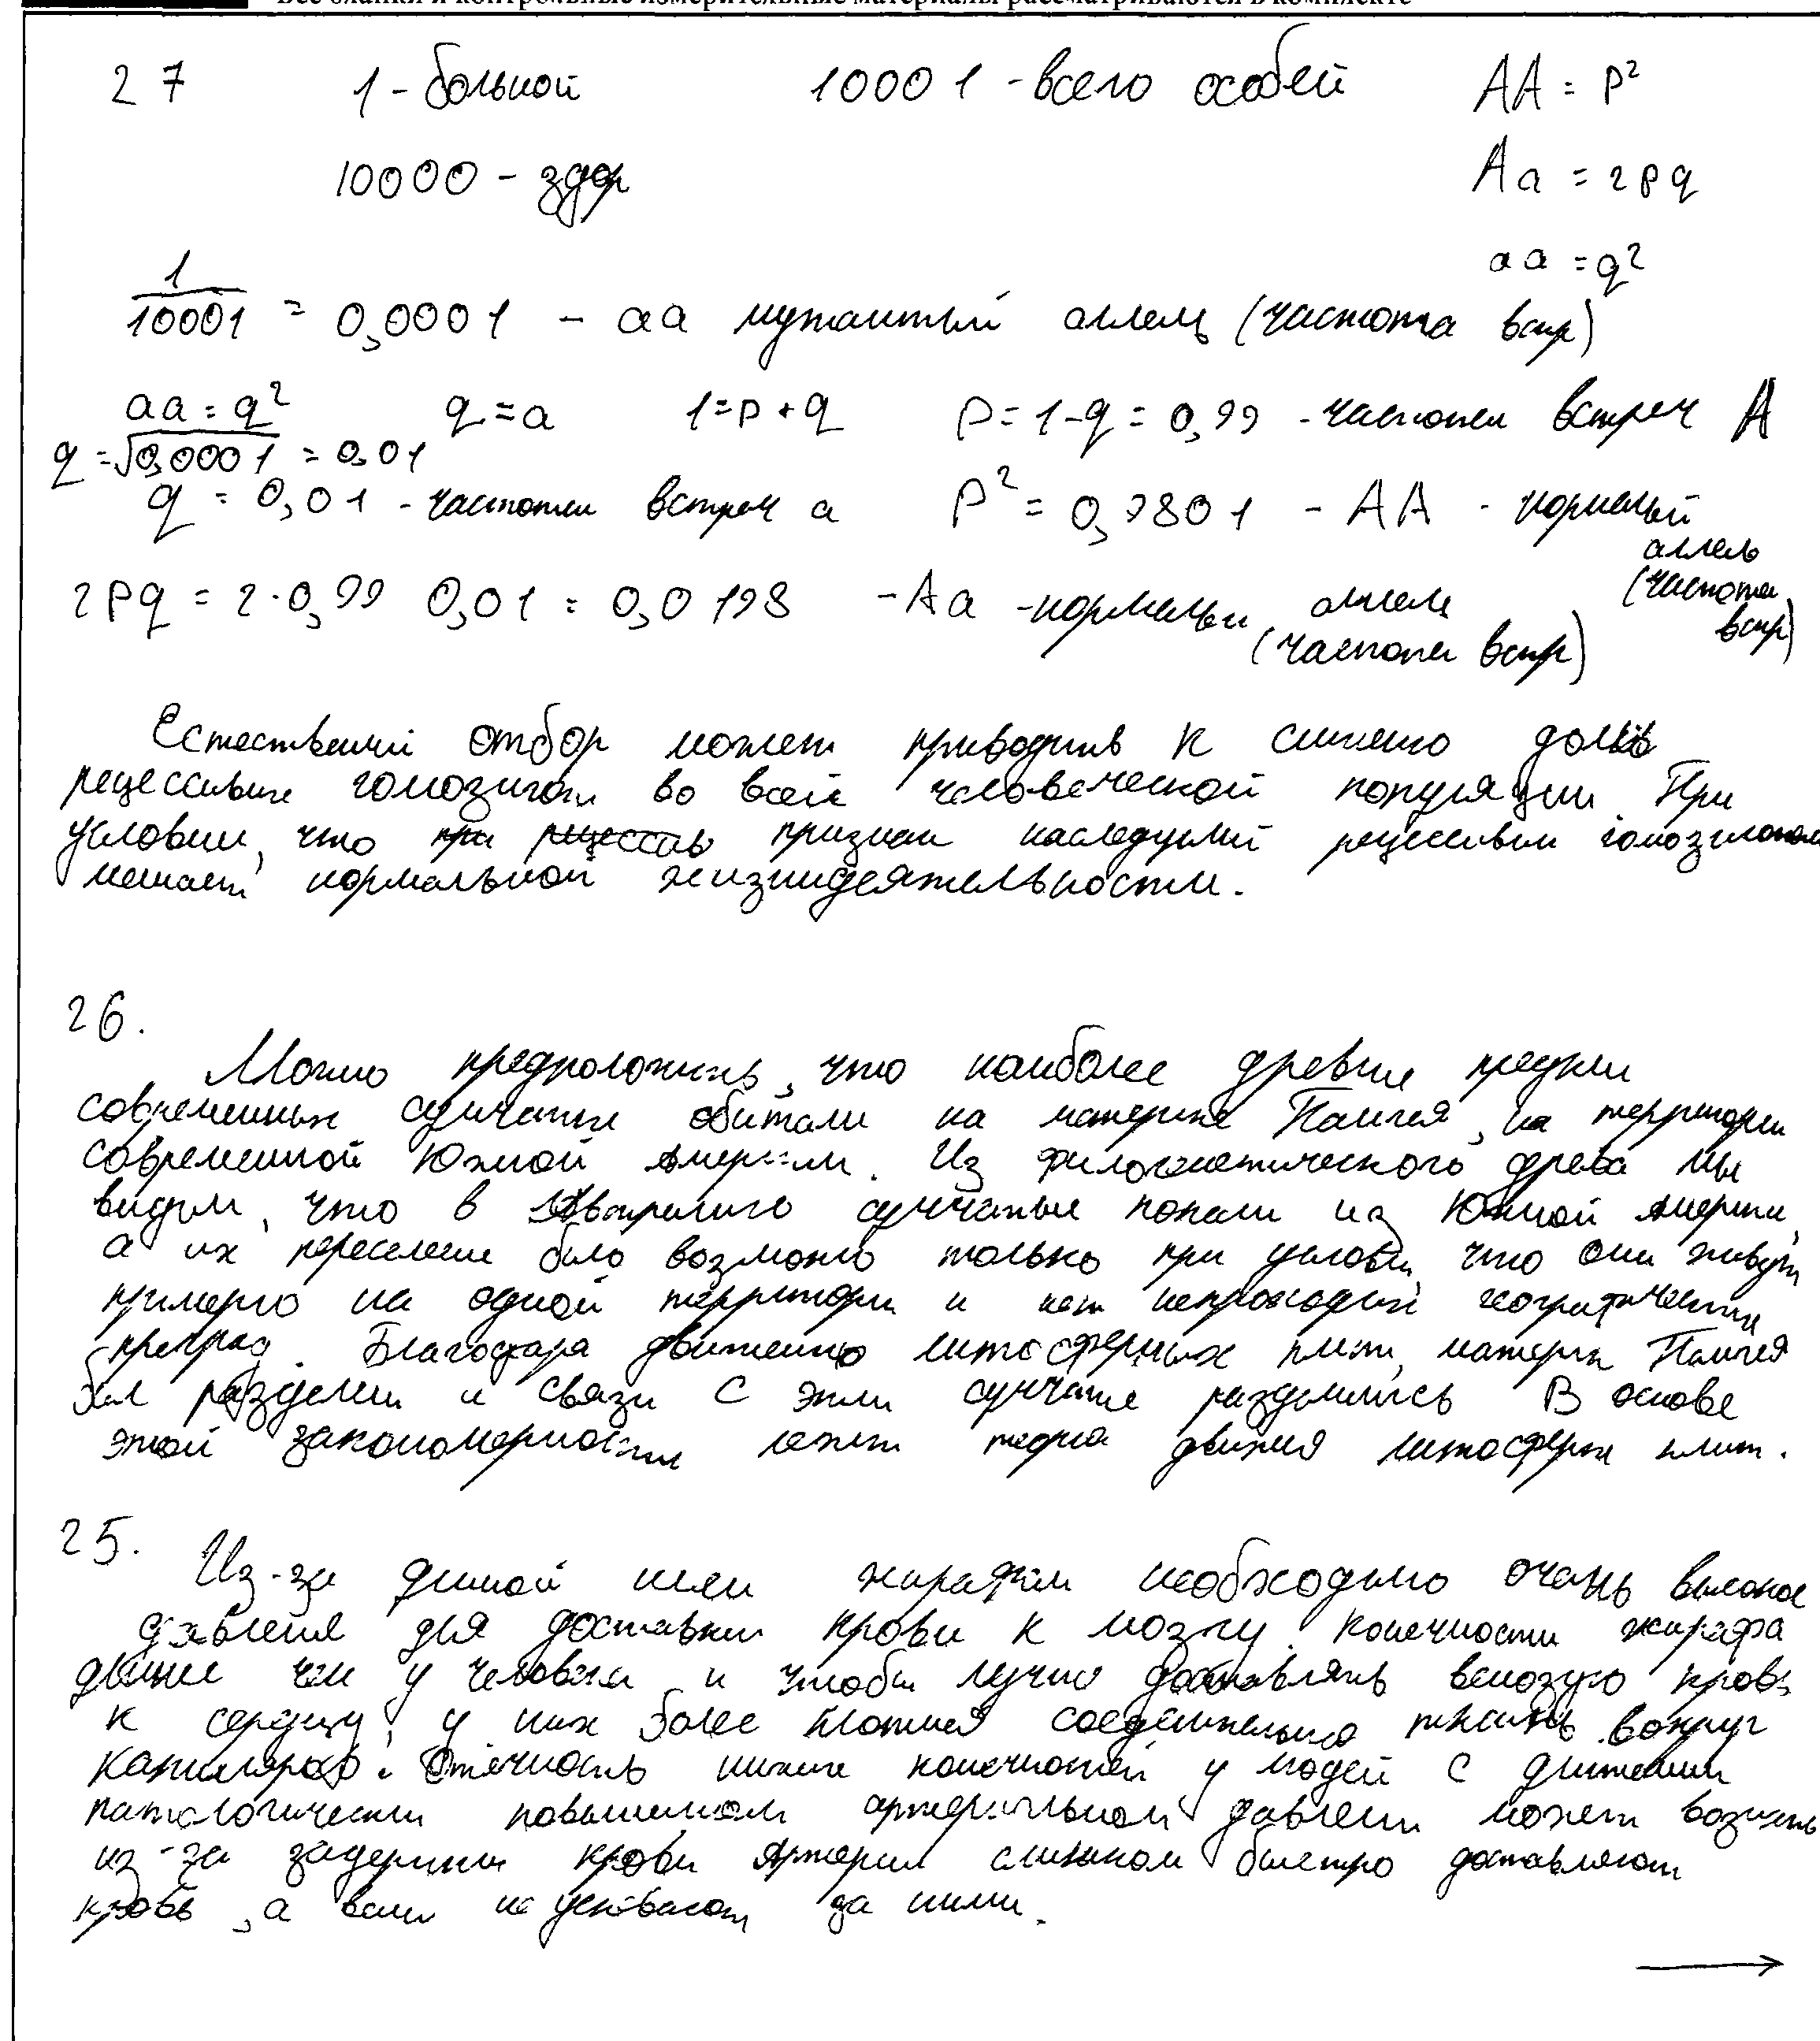 Все бланки и контрольные измерительные материалы рассматриваются в комплекте
27 1 - больной 10001 - всего особей AA = p²
10000 - здор Aa = 2pq
aa = q²
1/10001 = 0,0001 - aa мутантный аллель (частота встр)
aa = q² q = a 1 = p + q p = 1 - q = 0,99 - частота встреч A
q = √0,0001 = 0,01
q = 0,01 - частота встреч a p² = 0,9801 - AA - нормальный
аллель
(частота
встр)
2pq = 2·0,99 0,01 = 0,0198 - Aa - нормальн аллель
(частота встр)
Естественный отбор может приводить к снижению доли
рецессивных гомозигот во всей человеческой популяции При
условии, что при рецессив признак наследуемый рецессивн гомозиготам
мешает нормальной жизнидеятельности.
26.
Можно предположить, что наиболее древние предки
современных сумчатых обитали на материке Пангея, на территории
современной Южной Америки. Из филогенетического древа мы
видим, что в Австралию сумчатые попали из Южной Америки,
а их переселение было возможно только при условии, что они живут
примерно на одной территории и нет непроходим географических
преград. Благодаря движению литосферных плит, материк Пангея
был разделен и связи с этим сумчатые разделились В основе
этой закономерности лежит теория движения литосферных плит.
25. Из-за длиной шеи жирафам необходимо очень высокое
давление для доставки крови к мозгу. Конечности жирафа
длинее чем у человека и чтобы лучше доставлять венозную кровь
к сердцу, у них более плотная соединительная ткань вокруг
капиляров. Отечность нижних конечностей у людей с длительным
патологическим повышенном артериальном давлении может возникать
из-за задержки крови Артерии слишком быстро доставляют
кровь, а вены не успевают за ними.